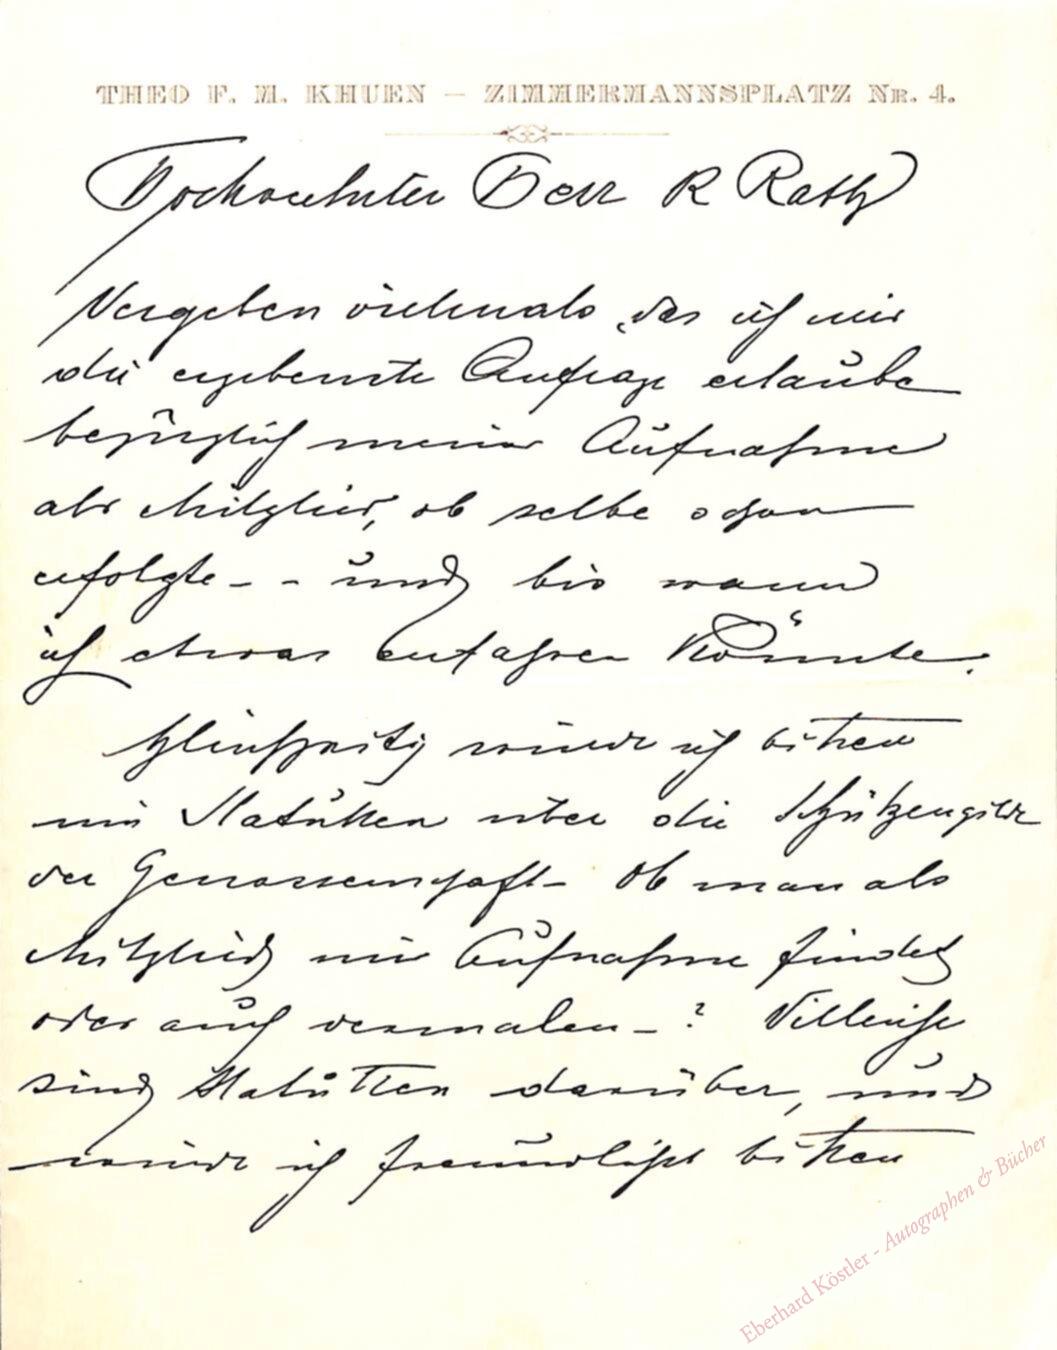 THEO F. M. KHUEN – ZIMMERMANNSPLATZ NR. 4.
Hochverehrter Herr R Rath
Vergeben vielmals, das ich mir
die ergebenste Anfrage erlaube
bezüglich meiner Aufnahme
als Mitglied, ob selbe schon
erfolgte – – und bis wann
ich etwas erfahren könnte.
Gleichzeitig würde ich bitten
um Statutten über die Schützengilde
der Genossenschaft – Ob man als
Mitglied nur Aufnahme findet
oder auch – ? Villeicht
sind Statutten darüber, und
würde ich freundlichst bitten
Eberhard Köstler - Autographen & Bücher